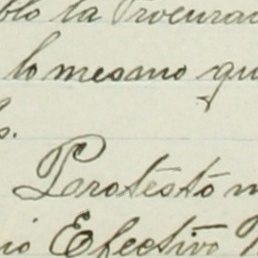 blo la Procura
lo mesmo qu
s.
Protesto m
io Efectivo